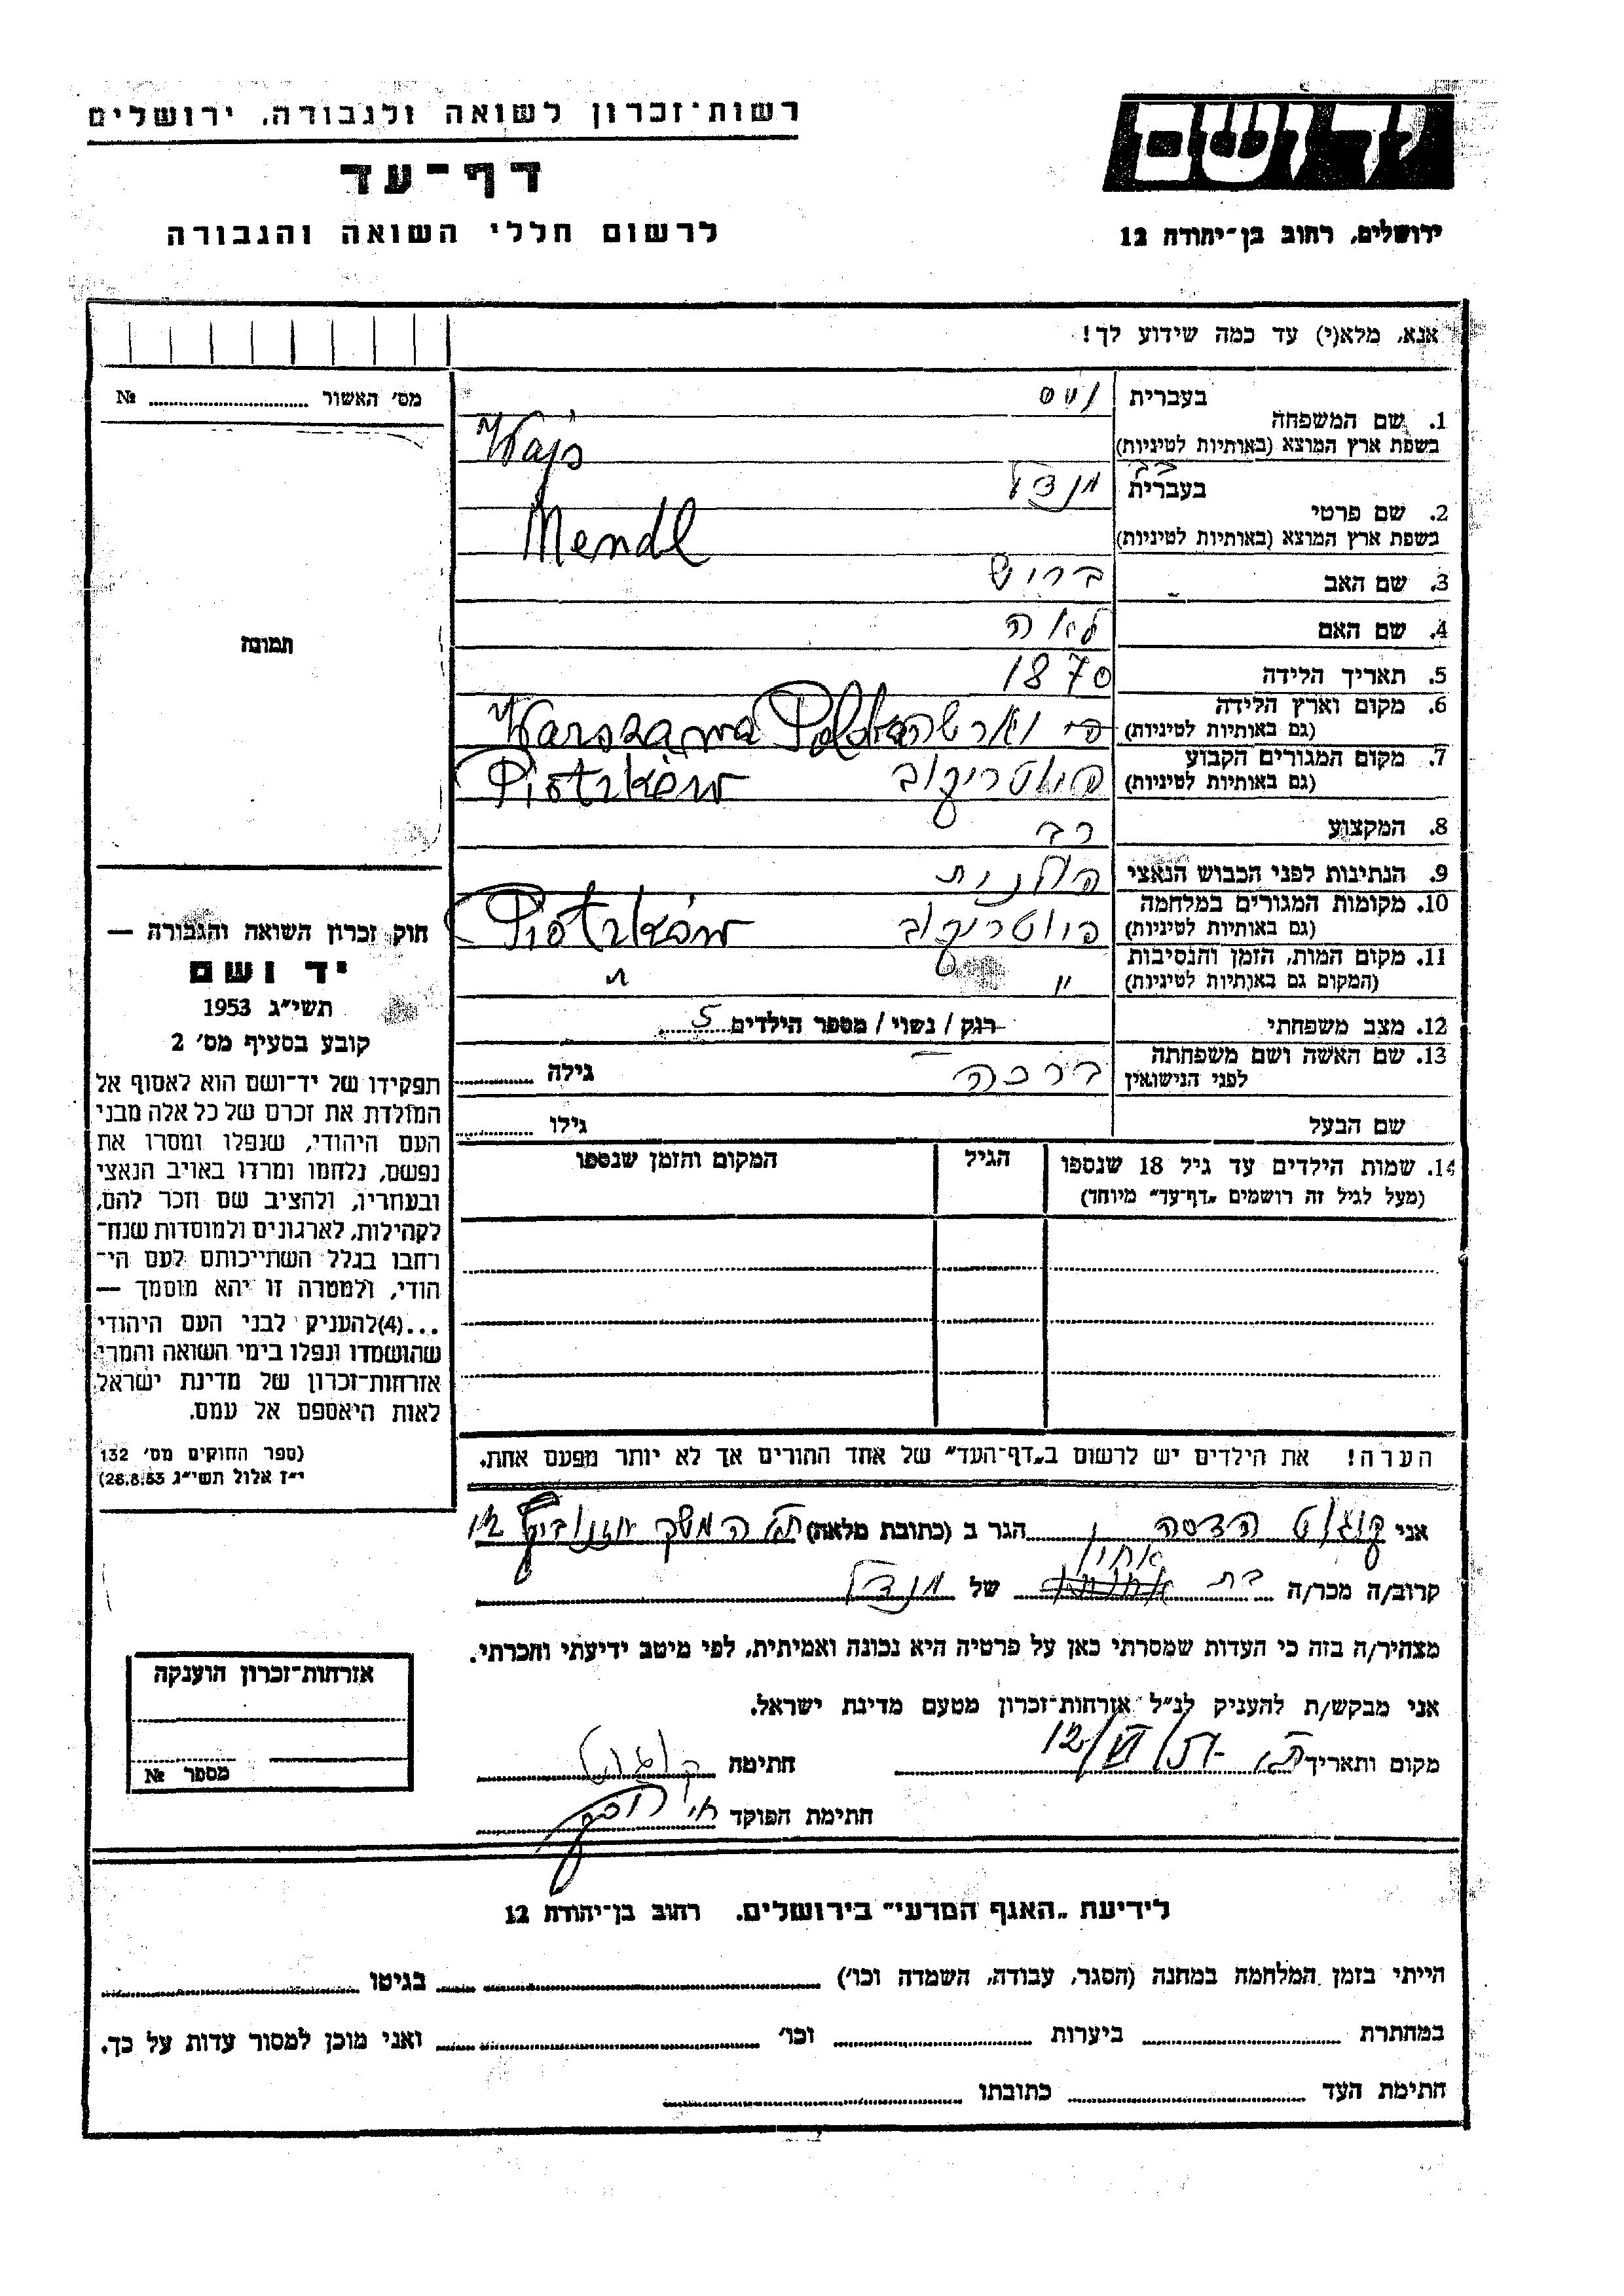 רשות־זכרון לשואה ולגבורה, ירושלים
יד ושם
דף־עד
לרשום חללי השואה והגבורה
ירושלים, רחוב בן־יהודה 12
אנא, מלא(י) עד כמה שידוע לך!
מס׳ האשור № 
1. שם המשפחה בעברית וויס
בשפת ארץ המוצא (באותיות לטיניות) Wajs
2. שם פרטי בעברית מנדל
בשפת ארץ המוצא (באותיות לטיניות) Mendl
3. שם האב בריש
4. שם האם לאה
5. תאריך הלידה 1870
6. מקום וארץ הלידה וארשה Warszawa Polska
(גם באותיות לטיניות)
7. מקום המגורים הקבוע פיוטריקוב Piotrków
(גם באותיות לטיניות)
8. המקצוע רב
9. הנתינות לפני הכבוש הנאצי פולנית
10. מקומות המגורים במלחמה פיוטריקוב Piotrków
(גם באותיות לטיניות)
11. מקום המות, הזמן והנסיבות " "
(המקום גם באותיות לטיניות)
12. מצב משפחתי רוק / נשוי / מספר הילדים 5
13. שם האשה ושם משפחתה ברכה גילה
לפני הנישואין
שם הבעל גילו
14. שמות הילדים עד גיל 18 שנספו הגיל המקום והזמן שנספו
(מעל לגיל זה רושמים „דף־עד״ מיוחד)
הערה! את הילדים יש לרשום ב„דף־העד״ של אחד ההורים אך לא יותר מפעם אחת.
תמונה
חוק זכרון השואה והגבורה —
יד ושם
תשי״ג 1953
קובע בסעיף מס׳ 2
תפקידו של יד־ושם הוא לאסוף אל
המולדת את זכרם של כל אלה מבני
העם היהודי, שנפלו ומסרו את
נפשם, נלחמו ומרדו באויב הנאצי
ובעוזריו, ולהציב שם וזכר להם,
לקהילות, לארגונים ולמוסדות שנח־
רחבו בגלל השתייכותם לעם הי־
הודי, ולמטרה זו יהא מוסמך —
...(4)להעניק לבני העם היהודי
שהושמדו ונפלו בימי השואה והמרי
אזרחות־זכרון של מדינת ישראל
לאות היאספם אל עמם.
(ספר החוקים מס׳ 132
י״ז אלול תשי״ג 28.8.53)
אני הדסה הגר ב (כתובת מלאה)
קרוב/ה מכר/ה בת אחיו של מנדל
מצהיר/ה בזה כי העדות שמסרתי כאן על פרטיה היא נכונה ואמיתית, לפי מיטב ידיעתי והכרתי.
אני מבקש/ת להעניק לנ״ל אזרחות־זכרון מטעם מדינת ישראל.
מקום ותאריך חתימה
חתימת הפוקד
אזרחות־זכרון הוענקה
מספר №
לידיעת „האגף המדעי״ בירושלים. רחוב בן־יהודה 12
הייתי בזמן המלחמה במחנה (הסגר, עבודה, השמדה וכו׳) בגיטו
במחתרת ביערות וכו׳ ואני מוכן למסור עדות על כך.
חתימת העד כתובתו